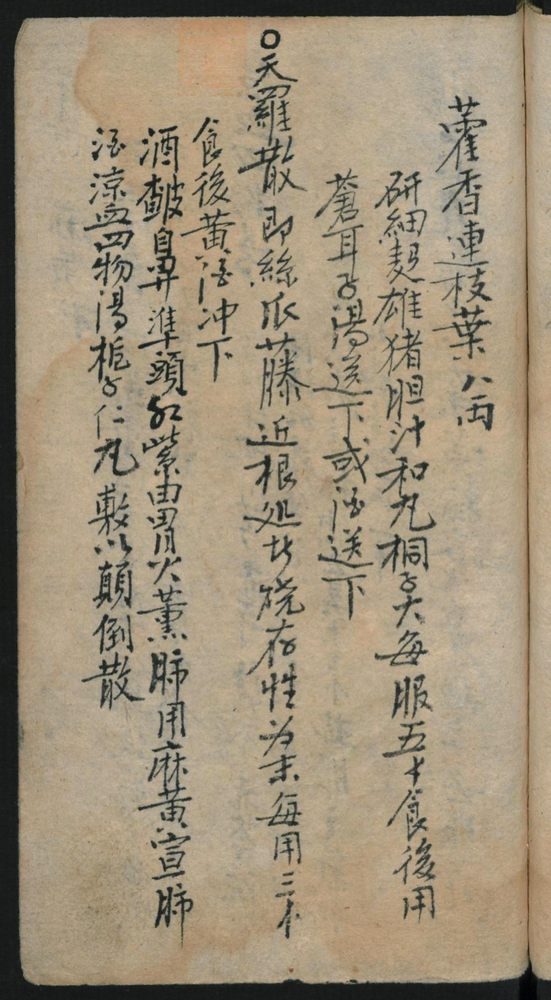 藿香連枝葉八両
研細麪雄猪胆汁和丸桐子大每服五十食後用
蒼耳子湯送下或酒送下
○天羅散即絲瓜藤近根处燒存性为末每用三
食後黄酒冲下
酒皶鼻準頭红紫由胃火薰肺用麻黄宣肺
酒凉血四物湯栀子仁丸敷以顛倒散